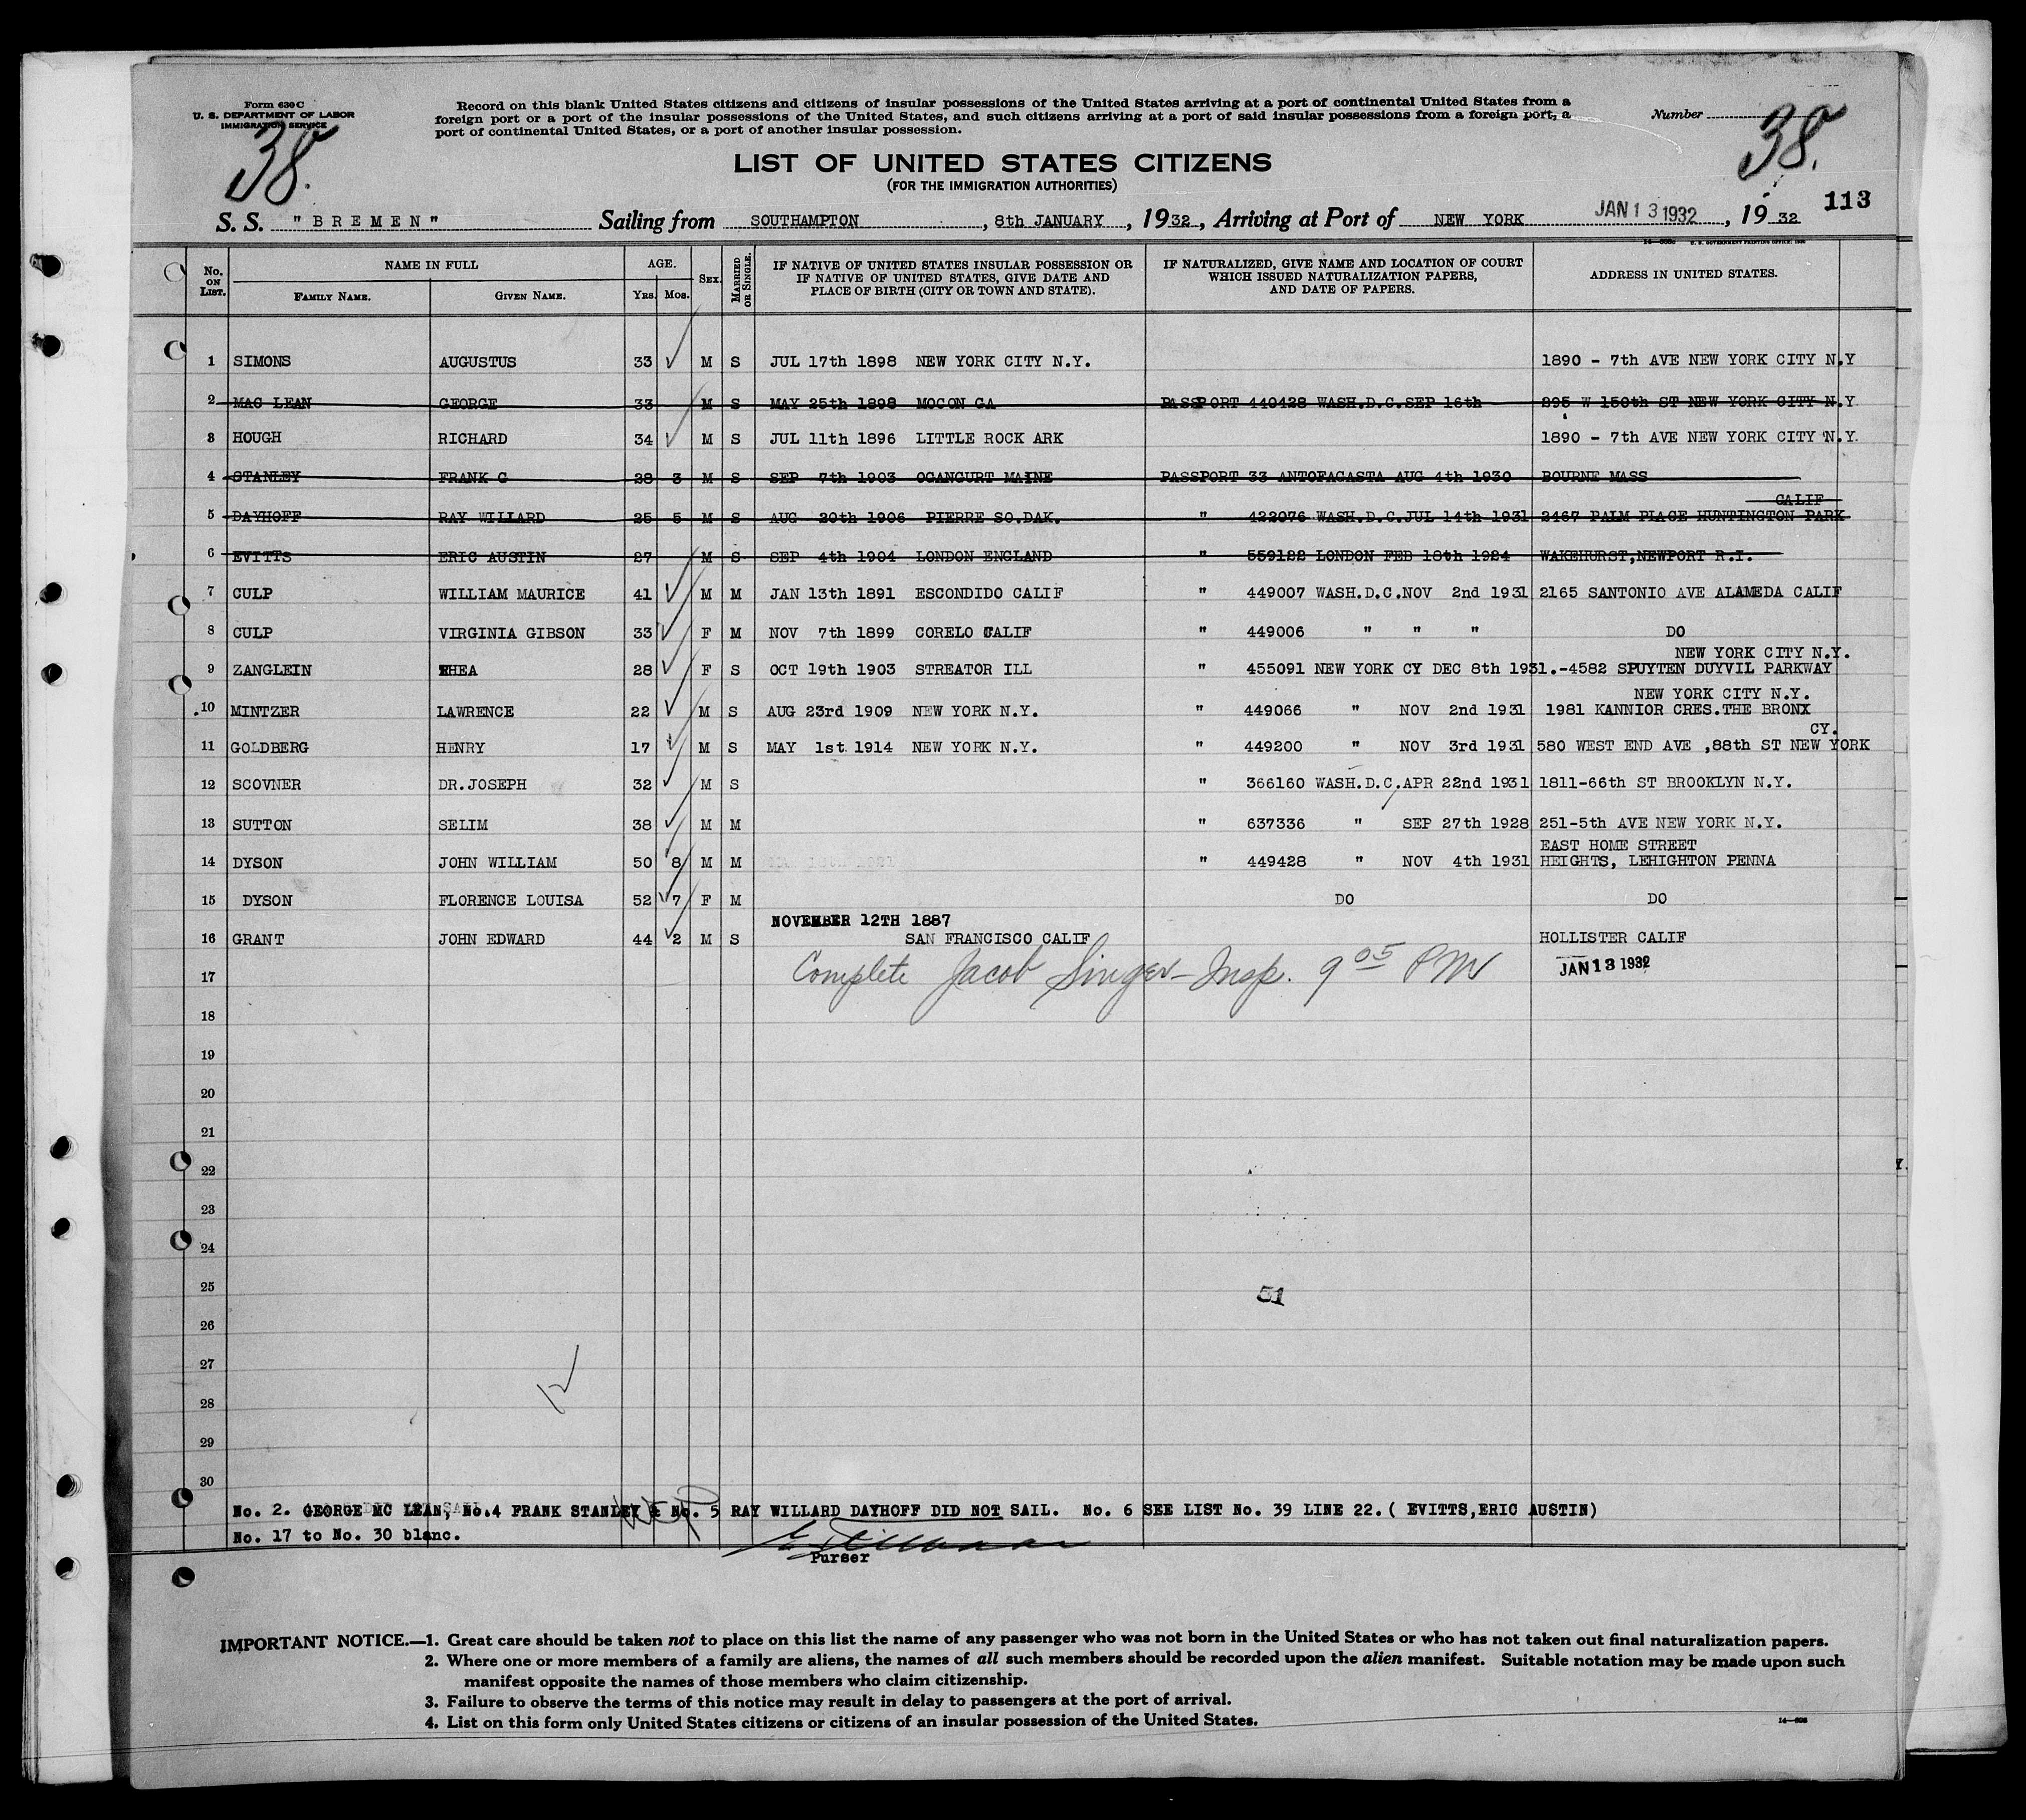 Form 630 C
U. S. DEPARTMENT OF LABOR
IMMIGRATION SERVICE
Record on this blank United States citizens and citizens of insular possessions of the United States arriving at a port of continental United States from a
foreign port or a port of the insular possessions of the United States, and such citizens arriving at a port of said insular possessions from a foreign port, a
port of continental United States, or a port of another insular possession.
Number
38.
38.
LIST OF UNITED STATES CITIZENS
(FOR THE IMMIGRATION AUTHORITIES)
113
S. S. "BREMEN" Sailing from SOUTHAMPTON, 8th JANUARY, 1932, Arriving at Port of NEW YORK JAN 13 1932, 1932
No. ON LIST. NAME IN FULL FAMILY NAME. GIVEN NAME. AGE. YRS. MOS. SEX. MARRIED OR SINGLE. IF NATIVE OF UNITED STATES INSULAR POSSESSION OR IF NATIVE OF UNITED STATES, GIVE DATE AND PLACE OF BIRTH (CITY OR TOWN AND STATE). IF NATURALIZED, GIVE NAME AND LOCATION OF COURT WHICH ISSUED NATURALIZATION PAPERS, AND DATE OF PAPERS. ADDRESS IN UNITED STATES.
1 SIMONS AUGUSTUS 33 M S JUL 17th 1898 NEW YORK CITY N.Y. 1890 - 7th AVE NEW YORK CITY N.Y
2 MAC LEAN GEORGE 33 M S MAY 25th 1898 MOCON GA PASSPORT 440428 WASH.D.C.SEP 16th 895 W 150th ST NEW YORK CITY N.Y
3 HOUGH RICHARD 34 M S JUL 11th 1896 LITTLE ROCK ARK 1890 - 7th AVE NEW YORK CITY N.Y.
4 STANLEY FRANK G 28 3 M S SEP 7th 1903 OGANGURT MAINE PASSPORT 33 ANTOFAGASTA AUG 4th 1930 BOURNE MASS
CALIF
5 DAYHOFF RAY WILLARD 25 5 M S AUG 20th 1906 PIERRE SO.DAK. " 422076 WASH.D.C.JUL 14th 1931 2467 PALM PLACE HUNTINGTON PARK
6 EVITTS ERIC AUSTIN 27 M S SEP 4th 1904 LONDON ENGLAND " 559122 LONDON FEB 18th 1924 WAKEHURST,NEWPORT R.I.
7 CULP WILLIAM MAURICE 41 M M JAN 13th 1891 ESCONDIDO CALIF " 449007 WASH.D.C.NOV 2nd 1931 2165 SANTONIO AVE ALAMEDA CALIF
8 CULP VIRGINIA GIBSON 33 F M NOV 7th 1899 CORELO CALIF " 449006 " " " DO
NEW YORK CITY N.Y.
9 ZANGLEIN RHEA 28 F S OCT 19th 1903 STREATOR ILL " 455091 NEW YORK CY DEC 8th 1931.-4582 SPUYTEN DUYVIL PARKWAY
NEW YORK CITY N.Y.
10 MINTZER LAWRENCE 22 M S AUG 23rd 1909 NEW YORK N.Y. " 449066 " NOV 2nd 1931 1981 KANNIOR CRES.THE BRONX
CY.
11 GOLDBERG HENRY 17 M S MAY 1st 1914 NEW YORK N.Y. " 449200 " NOV 3rd 1931 580 WEST END AVE ,88th ST NEW YORK
12 SCOVNER DR.JOSEPH 32 M S " 366160 WASH.D.C.APR 22nd 1931 1811-66th ST BROOKLYN N.Y.
13 SUTTON SELIM 38 M M " 637336 " SEP 27th 1928 251-5th AVE NEW YORK N.Y.
EAST HOME STREET
14 DYSON JOHN WILLIAM 50 8 M M " 449428 " NOV 4th 1931 HEIGHTS, LEHIGHTON PENNA
15 DYSON FLORENCE LOUISA 52 7 F M DO DO
NOVEMBER 12TH 1887
16 GRANT JOHN EDWARD 44 2 M S SAN FRANCISCO CALIF HOLLISTER CALIF
JAN 13 1932
17 Complete Jacob Singer - Insp. 9 05 PM
18
19
20
21
22
23
24
25
51
26
27
28
12
29
30
No. 2. GEORGE MC LEAN, No.4 FRANK STANLEY & No. 5 RAY WILLARD DAYHOFF DID NOT SAIL. No. 6 SEE LIST No. 39 LINE 22.( EVITTS,ERIC AUSTIN)
No. 17 to No. 30 blanc.
Purser
IMPORTANT NOTICE.—1. Great care should be taken not to place on this list the name of any passenger who was not born in the United States or who has not taken out final naturalization papers.
2. Where one or more members of a family are aliens, the names of all such members should be recorded upon the alien manifest. Suitable notation may be made upon such
manifest opposite the names of those members who claim citizenship.
3. Failure to observe the terms of this notice may result in delay to passengers at the port of arrival.
4. List on this form only United States citizens or citizens of an insular possession of the United States.